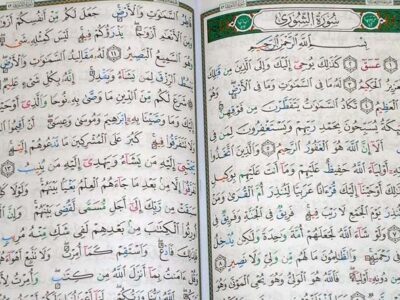 سُورَةُ الشُّورَىٰ
بِسْمِ اللَّهِ الرَّحْمَٰنِ الرَّحِيمِ
عسق ٢ كَذَٰلِكَ يُوحِي إِلَيْكَ وَإِلَى الَّذِينَ مِن قَبْلِكَ
الْعَزِيزُ الْحَكِيمُ ٣ لَهُ مَا فِي السَّمَٰوَٰتِ وَمَا فِي الْأَرْضِ وَهُوَ
الْعَظِيمُ ٤ تَكَادُ السَّمَٰوَٰتُ يَتَفَطَّرْنَ مِن فَوْقِهِنَّ
يُسَبِّحُونَ بِحَمْدِ رَبِّهِمْ وَيَسْتَغْفِرُونَ لِمَن فِي
أَلَا إِنَّ اللَّهَ هُوَ الْغَفُورُ الرَّحِيمُ ٥ وَالَّذِينَ اتَّخَذُوا
أَوْلِيَاءَ اللَّهُ حَفِيظٌ عَلَيْهِمْ وَمَا أَنتَ عَلَيْهِم بِوَكِيلٍ
أَوْحَيْنَا إِلَيْكَ قُرْءَانًا عَرَبِيًّا لِّتُنذِرَ أُمَّ الْقُرَىٰ وَمَنْ
وَتُنذِرَ يَوْمَ الْجَمْعِ لَا رَيْبَ فِيهِ فَرِيقٌ فِي الْجَنَّةِ وَفَرِيقٌ
وَلَوْ شَاءَ اللَّهُ لَجَعَلَهُمْ أُمَّةً وَٰحِدَةً وَلَٰكِن يُدْخِلُ
فِي رَحْمَتِهِ وَالظَّٰلِمُونَ مَا لَهُم مِّن وَلِيٍّ وَلَا نَصِيرٍ
أَوْلِيَاءَ فَاللَّهُ هُوَ الْوَلِيُّ وَهُوَ يُحْيِي الْمَوْتَىٰ وَهُوَ
فَاطِرُ السَّمَٰوَٰتِ وَالْأَرْضِ جَعَلَ لَكُم مِّنْ
وَمِنَ الْأَنْعَٰمِ أَزْوَٰجًا يَذْرَؤُكُمْ فِيهِ لَيْسَ كَمِثْلِهِ
وَهُوَ السَّمِيعُ الْبَصِيرُ ١١ لَهُ مَقَالِيدُ السَّمَٰوَٰتِ وَالْأَرْضِ
يَبْسُطُ الرِّزْقَ لِمَن يَشَاءُ وَيَقْدِرُ إِنَّهُ بِكُلِّ شَيْءٍ عَلِيمٌ
شَرَعَ لَكُم مِّنَ الدِّينِ مَا وَصَّىٰ بِهِ نُوحًا وَالَّذِي
وَمَا وَصَّيْنَا بِهِ إِبْرَٰهِيمَ وَمُوسَىٰ وَعِيسَىٰ
وَلَا تَتَفَرَّقُوا فِيهِ كَبُرَ عَلَى الْمُشْرِكِينَ مَا تَدْعُوهُمْ
يَجْتَبِي إِلَيْهِ مَن يَشَاءُ وَيَهْدِي إِلَيْهِ مَن يُنِيبُ
تَفَرَّقُوا إِلَّا مِن بَعْدِ مَا جَاءَهُمُ الْعِلْمُ بَغْيًا بَيْنَهُمْ وَلَوْلَا
سَبَقَتْ مِن رَّبِّكَ إِلَىٰ أَجَلٍ مُّسَمًّى لَّقُضِيَ بَيْنَهُمْ وَإِنَّ
مِن بَعْدِهِمْ لَفِي شَكٍّ مِّنْهُ مُرِيبٍ
فَادْعُ وَاسْتَقِمْ كَمَا أُمِرْتَ وَلَا تَتَّبِعْ أَهْوَاءَهُمْ
وَقُلْ ءَامَنتُ بِمَا أَنزَلَ اللَّهُ مِن كِتَٰبٍ وَأُمِرْتُ